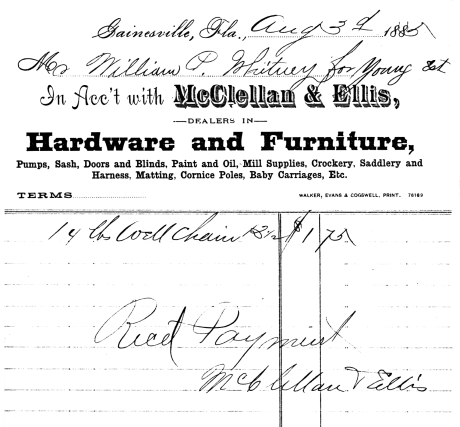 Gainesville, Fla., Aug 3d 1885
Mr William P. Whitney for Young Est
In Acc't with McClellan & Ellis,
—DEALERS IN—
Hardware and Furniture,
Pumps, Sash, Doors and Blinds, Paint and Oil, Mill Supplies, Crockery, Saddlery and
Harness, Matting, Cornice Poles, Baby Carriages, Etc.
TERMS
WALKER, EVANS & COGSWELL, PRINT. 76169
14 lbs Well Chain 12½ $1 75
Recd Payment
McClellan & Ellis